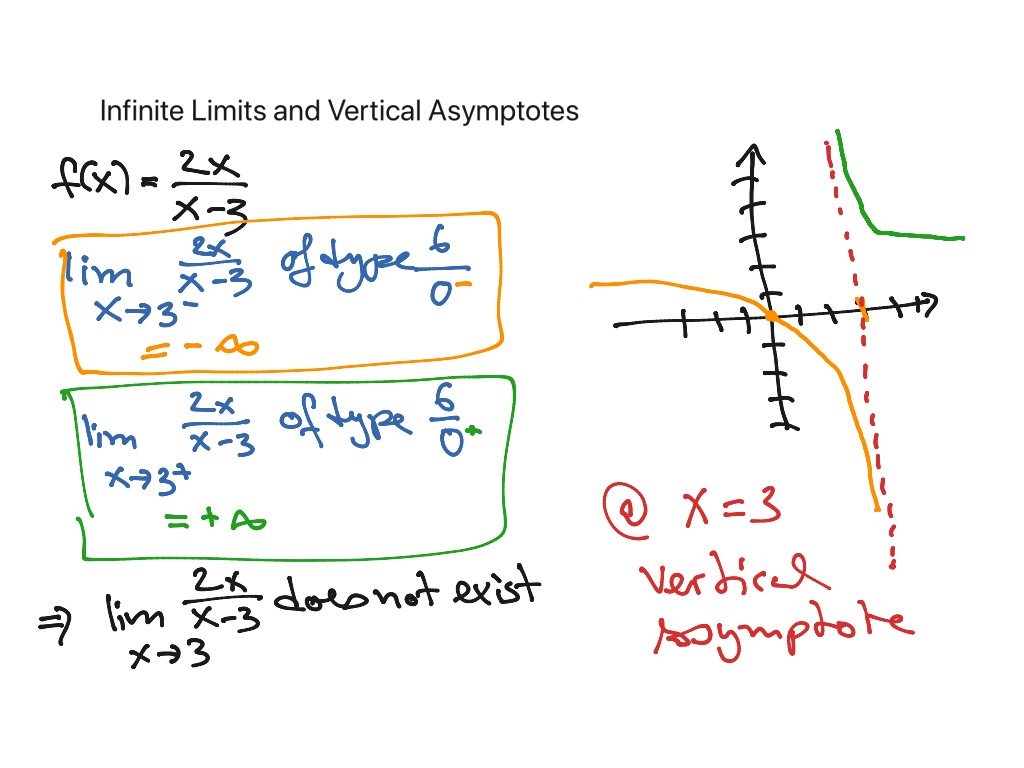 Infinite Limits and Vertical Asymptotes
f(x) = 2x / x-3
lim x→3⁻ 2x / x-3 of type 6 / 0⁻
= - ∞
lim x→3⁺ 2x / x-3 of type 6 / 0⁺
= + ∞
⇒ lim x→3 2x / x-3 does not exist
@ x = 3
vertical
asymptote